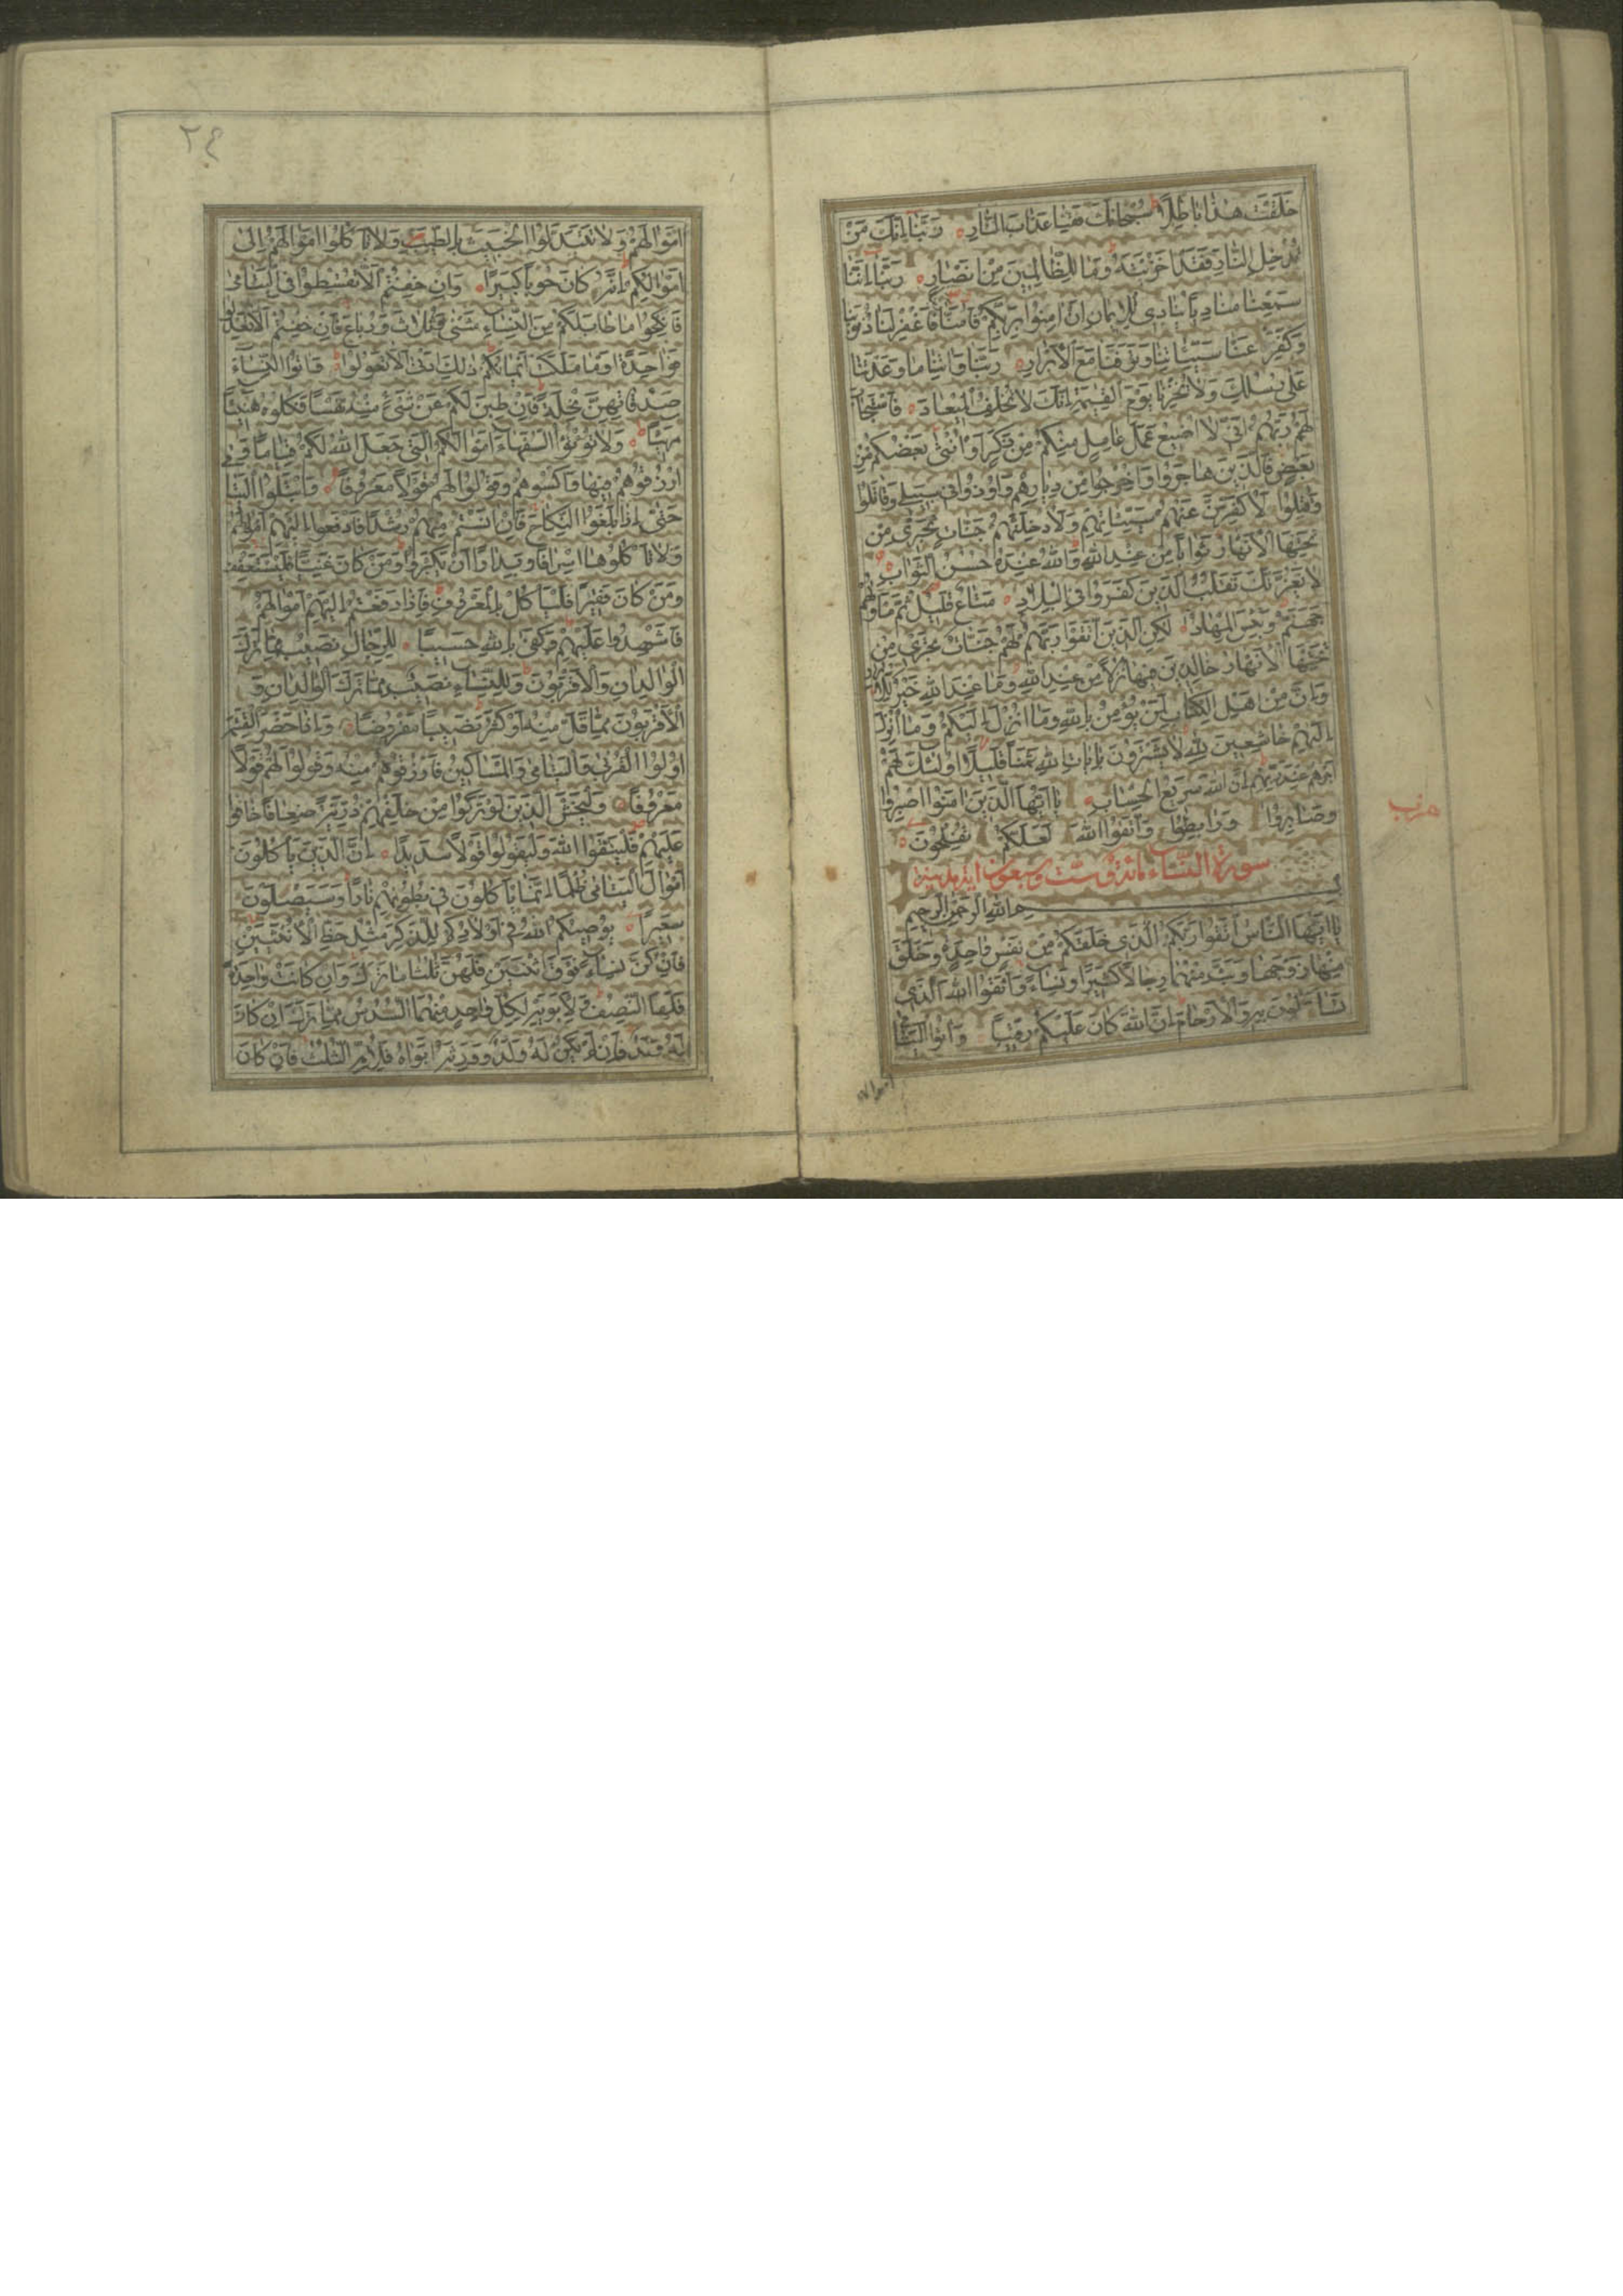 خَلَقْتَ هٰذَا بَاطِلًا سُبْحَانَكَ فَقِنَا عَذَابَ النَّارِ رَبَّنَا اِنَّكَ مَنْ
تُدْخِلِ النَّارَ فَقَدْ اَخْزَيْتَهُ وَمَا لِلظَّالِمِينَ مِنْ اَنْصَارٍ رَبَّنَا اِنَّنَا
سَمِعْنَا مُنَادِيًا يُنَادِي لِلْاِيمَانِ اَنْ اٰمِنُوا بِرَبِّكُمْ فَاٰمَنَّا رَبَّنَا فَاغْفِرْ لَنَا ذُنُوبَنَا
وَكَفِّرْ عَنَّا سَيِّئَاتِنَا وَتَوَفَّنَا مَعَ الْاَبْرَارِ رَبَّنَا وَاٰتِنَا مَا وَعَدْتَنَا
عَلٰى رُسُلِكَ وَلَا تُخْزِنَا يَوْمَ الْقِيٰمَةِ اِنَّكَ لَا تُخْلِفُ الْمِيعَادَ فَاسْتَجَابَ
لَهُمْ رَبُّهُمْ اَنِّي لَا اُضِيعُ عَمَلَ عَامِلٍ مِنْكُمْ مِنْ ذَكَرٍ اَوْ اُنْثٰى بَعْضُكُمْ مِنْ
بَعْضٍ فَالَّذِينَ هَاجَرُوا وَاُخْرِجُوا مِنْ دِيَارِهِمْ وَاُوذُوا فِي سَبِيلِي وَقَاتَلُوا
وَقُتِلُوا لَاُكَفِّرَنَّ عَنْهُمْ سَيِّئَاتِهِمْ وَلَاُدْخِلَنَّهُمْ جَنَّاتٍ تَجْرِي مِنْ
تَحْتِهَا الْاَنْهَارُ ثَوَابًا مِنْ عِنْدِ اللّٰهِ وَاللّٰهُ عِنْدَهُ حُسْنُ الثَّوَابِ
لَا يَغُرَّنَّكَ تَقَلُّبُ الَّذِينَ كَفَرُوا فِي الْبِلَادِ مَتَاعٌ قَلِيلٌ ثُمَّ مَأْوٰيهُمْ
جَهَنَّمُ وَبِئْسَ الْمِهَادُ لٰكِنِ الَّذِينَ اتَّقَوْا رَبَّهُمْ لَهُمْ جَنَّاتٌ تَجْرِي مِنْ
تَحْتِهَا الْاَنْهَارُ خَالِدِينَ فِيهَا نُزُلًا مِنْ عِنْدِ اللّٰهِ وَمَا عِنْدَ اللّٰهِ خَيْرٌ لِلْاَبْرَارِ
وَاِنَّ مِنْ اَهْلِ الْكِتَابِ لَمَنْ يُؤْمِنُ بِاللّٰهِ وَمَا اُنْزِلَ اِلَيْكُمْ وَمَا اُنْزِلَ
اِلَيْهِمْ خَاشِعِينَ لِلّٰهِ لَا يَشْتَرُونَ بِاٰيَاتِ اللّٰهِ ثَمَنًا قَلِيلًا اُولٰئِكَ لَهُمْ
اَجْرُهُمْ عِنْدَ رَبِّهِمْ اِنَّ اللّٰهَ سَرِيعُ الْحِسَابِ يَا اَيُّهَا الَّذِينَ اٰمَنُوا اصْبِرُوا
وَصَابِرُوا وَرَابِطُوا وَاتَّقُوا اللّٰهَ لَعَلَّكُمْ تُفْلِحُونَ
حزب
سورة النساء مائة وست وسبعون اية مدنية
بِسْمِ اللّٰهِ الرَّحْمٰنِ الرَّحِيمِ
يَا اَيُّهَا النَّاسُ اتَّقُوا رَبَّكُمُ الَّذِي خَلَقَكُمْ مِنْ نَفْسٍ وَاحِدَةٍ وَخَلَقَ
مِنْهَا زَوْجَهَا وَبَثَّ مِنْهُمَا رِجَالًا كَثِيرًا وَنِسَاءً وَاتَّقُوا اللّٰهَ الَّذِي
تَسَاءَلُونَ بِهِ وَالْاَرْحَامَ اِنَّ اللّٰهَ كَانَ عَلَيْكُمْ رَقِيبًا وَاٰتُوا الْيَتَامٰى
اموالهم
٢٤
اَمْوَالَهُمْ وَلَا تَتَبَدَّلُوا الْخَبِيثَ بِالطَّيِّبِ وَلَا تَأْكُلُوا اَمْوَالَهُمْ اِلٰى
اَمْوَالِكُمْ اِنَّهُ كَانَ حُوبًا كَبِيرًا وَاِنْ خِفْتُمْ اَلَّا تُقْسِطُوا فِي الْيَتَامٰى
فَانْكِحُوا مَا طَابَ لَكُمْ مِنَ النِّسَاءِ مَثْنٰى وَثُلَاثَ وَرُبَاعَ فَاِنْ خِفْتُمْ اَلَّا تَعْدِلُوا
فَوَاحِدَةً اَوْ مَا مَلَكَتْ اَيْمَانُكُمْ ذٰلِكَ اَدْنٰى اَلَّا تَعُولُوا وَاٰتُوا النِّسَاءَ
صَدُقَاتِهِنَّ نِحْلَةً فَاِنْ طِبْنَ لَكُمْ عَنْ شَيْءٍ مِنْهُ نَفْسًا فَكُلُوهُ هَنِيئًا
مَرِيئًا وَلَا تُؤْتُوا السُّفَهَاءَ اَمْوَالَكُمُ الَّتِي جَعَلَ اللّٰهُ لَكُمْ قِيَامًا وَ
ارْزُقُوهُمْ فِيهَا وَاكْسُوهُمْ وَقُولُوا لَهُمْ قَوْلًا مَعْرُوفًا وَابْتَلُوا الْيَتَامٰى
حَتّٰى اِذَا بَلَغُوا النِّكَاحَ فَاِنْ اٰنَسْتُمْ مِنْهُمْ رُشْدًا فَادْفَعُوا اِلَيْهِمْ اَمْوَالَهُمْ
وَلَا تَأْكُلُوهَا اِسْرَافًا وَبِدَارًا اَنْ يَكْبَرُوا وَمَنْ كَانَ غَنِيًّا فَلْيَسْتَعْفِفْ
وَمَنْ كَانَ فَقِيرًا فَلْيَأْكُلْ بِالْمَعْرُوفِ فَاِذَا دَفَعْتُمْ اِلَيْهِمْ اَمْوَالَهُمْ
فَاَشْهِدُوا عَلَيْهِمْ وَكَفٰى بِاللّٰهِ حَسِيبًا لِلرِّجَالِ نَصِيبٌ مِمَّا تَرَكَ
الْوَالِدَانِ وَالْاَقْرَبُونَ وَلِلنِّسَاءِ نَصِيبٌ مِمَّا تَرَكَ الْوَالِدَانِ وَ
الْاَقْرَبُونَ مِمَّا قَلَّ مِنْهُ اَوْ كَثُرَ نَصِيبًا مَفْرُوضًا وَاِذَا حَضَرَ الْقِسْمَةَ
اُولُوا الْقُرْبٰى وَالْيَتَامٰى وَالْمَسَاكِينُ فَارْزُقُوهُمْ مِنْهُ وَقُولُوا لَهُمْ قَوْلًا
مَعْرُوفًا وَلْيَخْشَ الَّذِينَ لَوْ تَرَكُوا مِنْ خَلْفِهِمْ ذُرِّيَّةً ضِعَافًا خَافُوا
عَلَيْهِمْ فَلْيَتَّقُوا اللّٰهَ وَلْيَقُولُوا قَوْلًا سَدِيدًا اِنَّ الَّذِينَ يَأْكُلُونَ
اَمْوَالَ الْيَتَامٰى ظُلْمًا اِنَّمَا يَأْكُلُونَ فِي بُطُونِهِمْ نَارًا وَسَيَصْلَوْنَ
سَعِيرًا يُوصِيكُمُ اللّٰهُ فِي اَوْلَادِكُمْ لِلذَّكَرِ مِثْلُ حَظِّ الْاُنْثَيَيْنِ
فَاِنْ كُنَّ نِسَاءً فَوْقَ اثْنَتَيْنِ فَلَهُنَّ ثُلُثَا مَا تَرَكَ وَاِنْ كَانَتْ وَاحِدَةً
فَلَهَا النِّصْفُ وَلِاَبَوَيْهِ لِكُلِّ وَاحِدٍ مِنْهُمَا السُّدُسُ مِمَّا تَرَكَ اِنْ كَانَ
لَهُ وَلَدٌ فَاِنْ لَمْ يَكُنْ لَهُ وَلَدٌ وَوَرِثَهُ اَبَوَاهُ فَلِاُمِّهِ الثُّلُثُ فَاِنْ كَانَ